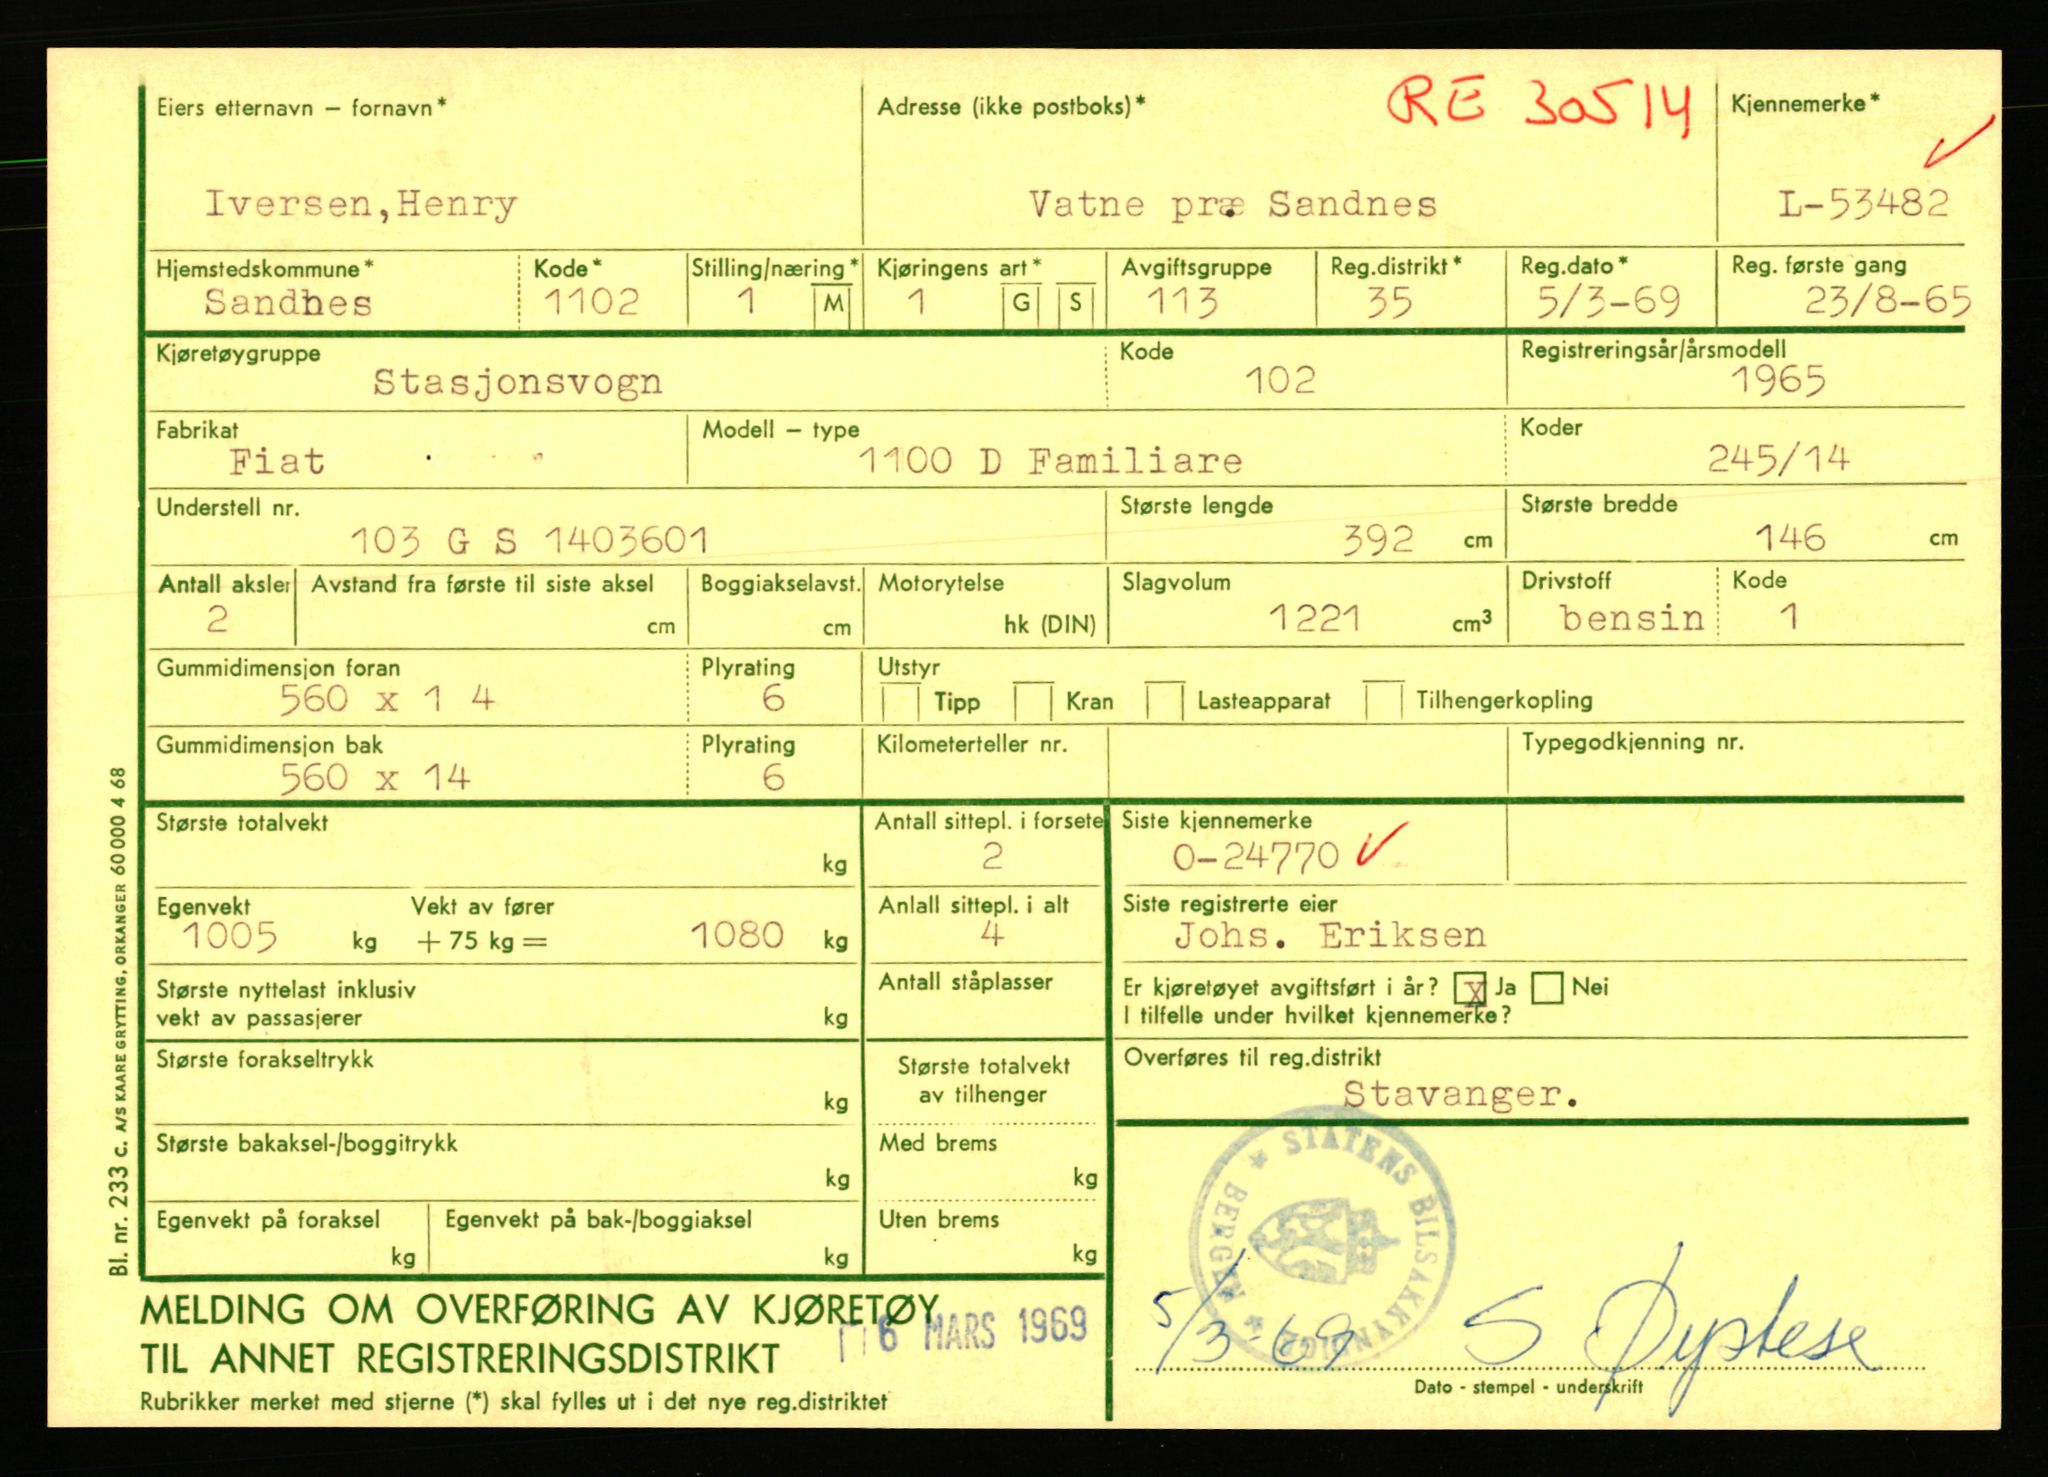 RE 30514
Eiers etternavn – fornavn* Adresse (ikke postboks)* Kjennemerke*
Iversen,Henry Vatne præ. Sandnes L-53482
Hjemstedskommune* Kode* Stilling/næring* Kjøringens art* Avgiftsgruppe Reg.distrikt* Reg.dato* Reg. første gang
Sandnes 1102 1 M 1 G S 113 35 5/3-69 23/8-65
Kjøretøygruppe Kode Registreringsår/årsmodell
Stasjonsvogn 102 1965
Fabrikat Modell – type Koder
Fiat 1100 D Familiare 245/14
Understell nr. Største lengde Største bredde
103 G S 1403601 392 cm 146 cm
Antall aksler Avstand fra første til siste aksel Boggiakselavst. Motorytelse Slagvolum Drivstoff Kode
2 cm cm hk (DIN) 1221 cm³ bensin 1
Gummidimensjon foran Plyrating Utstyr
560 x 1 4 6 Tipp Kran Lasteapparat Tilhengerkopling
Gummidimensjon bak Plyrating Kilometerteller nr. Typegodkjenning nr.
560 x 14 6
Største totalvekt Antall sittepl. i forsete Siste kjennemerke
kg 2 O-24770
Egenvekt Vekt av fører Anlall sittepl. i alt Siste registrerte eier
1005 kg + 75 kg = 1080 kg 4 Johs. Eriksen
Største nyttelast inklusiv Antall ståplasser Er kjøretøyet avgiftsført i år? x Ja Nei
vekt av passasjerer kg I tilfelle under hvilket kjennemerke?
Største forakseltrykk Største totalvekt Overføres til reg.distrikt
kg av tilhenger Stavanger.
Største bakaksel-/boggitrykk Med brems
kg kg
Egenvekt på foraksel Egenvekt på bak-/boggiaksel Uten brems
kg kg kg
STATENS BILSAKKYNDIGE
BERGEN
MELDING OM OVERFØRING AV KJØRETØY
6 MARS 1969 5/3-69 S Øystese
TIL ANNET REGISTRERINGSDISTRIKT
Dato - stempel - underskrift
Rubrikker merket med stjerne (*) skal fylles ut i det nye reg.distriktet
Bl. nr. 233 c. A/S KAARE GRYTTING, ORKANGER 60 000 4 68